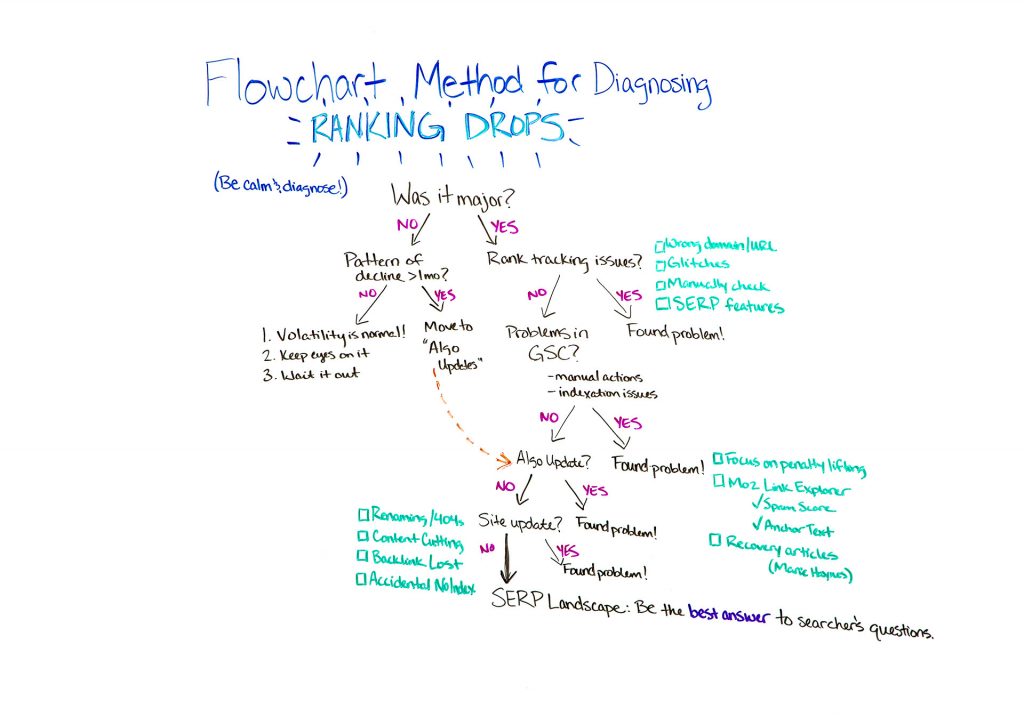 Flowchart Method for Diagnosing
RANKING DROPS
(Be calm & diagnose!)
Was it major?
NO
YES
Pattern of
decline >1mo?
Rank tracking issues?
□ Wrong domain/URL
□ Glitches
□ Manually check
□ SERP features
NO
YES
NO
YES
1. Volatility is normal!
2. Keep eyes on it
3. Wait it out
Move to
"Algo
Updates"
Problems in
GSC?
- manual actions
- indexation issues
Found problem!
NO
YES
Algo Update?
Found problem!
□ Focus on penalty lifting
□ Moz Link Explorer
✓ Spam Score
✓ Anchor Text
□ Recovery articles
(Marie Haynes)
NO
YES
□ Renaming/404s
□ Content Cutting
□ Backlink Lost
□ Accidental NoIndex
Site update?
Found problem!
NO
YES
Found problem!
SERP Landscape: Be the best answer to searcher's questions.